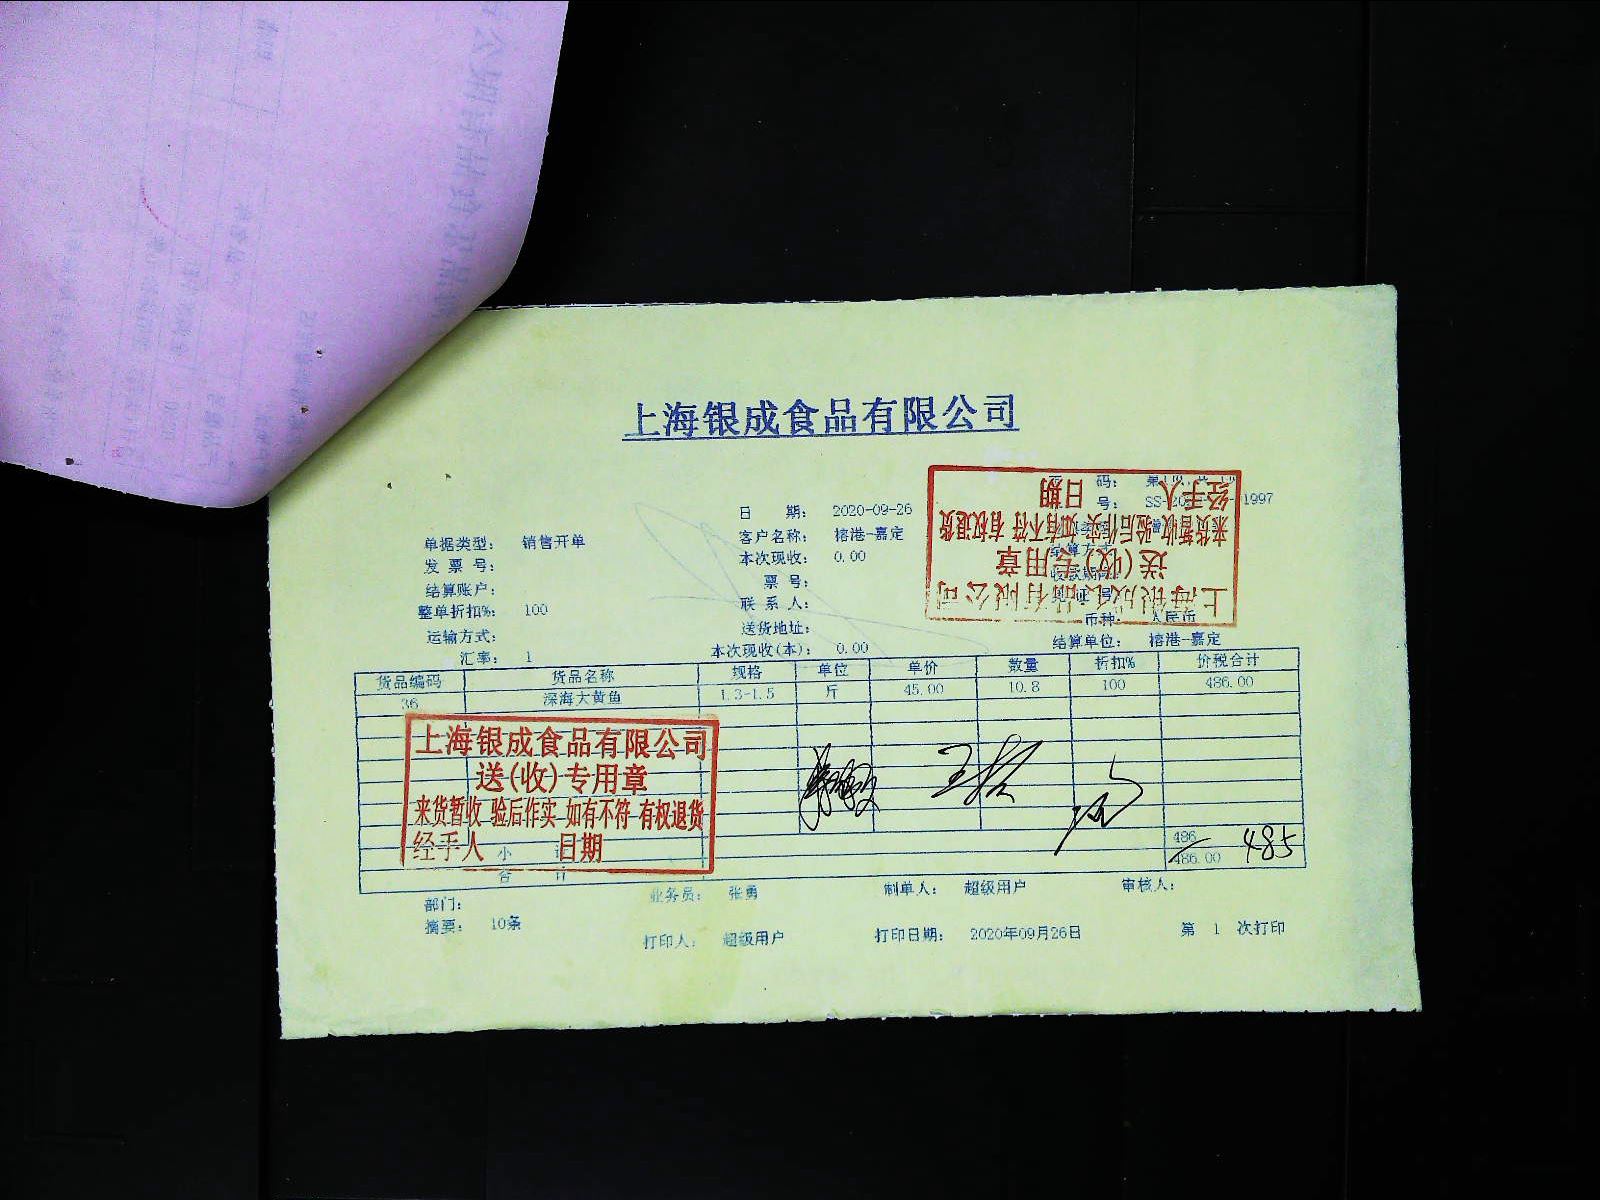 上海银成食品有限公司
日 期: 2020-09-26
码: 第
号: SS-20 1997
单据类型: 销售开单
客户名称: 榕港-嘉定
发 票 号:
本次现收: 0.00
结算方式
结算账户:
票 号:
收款期限
整单折扣%: 100
联 系 人:
运输方式:
送货地址:
币种: 人民币
汇率: 1
本次现收(本): 0.00
结算单位: 榕港-嘉定
上海银成食品有限公司
送(收)专用章
来货暂收 验后作实 如有不符 有权退货
经手人 日期
货品编码 货品名称 规格 单位 单价 数量 折扣% 价税合计
36 深海大黄鱼 1.3-1.5 斤 45.00 10.8 100 486.00
上海银成食品有限公司
送(收)专用章
来货暂收 验后作实 如有不符 有权退货
经手人 日期
小 计 486
合 计 486.00 485
部门: 业务员: 张勇 制单人: 超级用户 审核人:
摘要: 10条
打印人: 超级用户 打印日期: 2020年09月26日 第 1 次打印